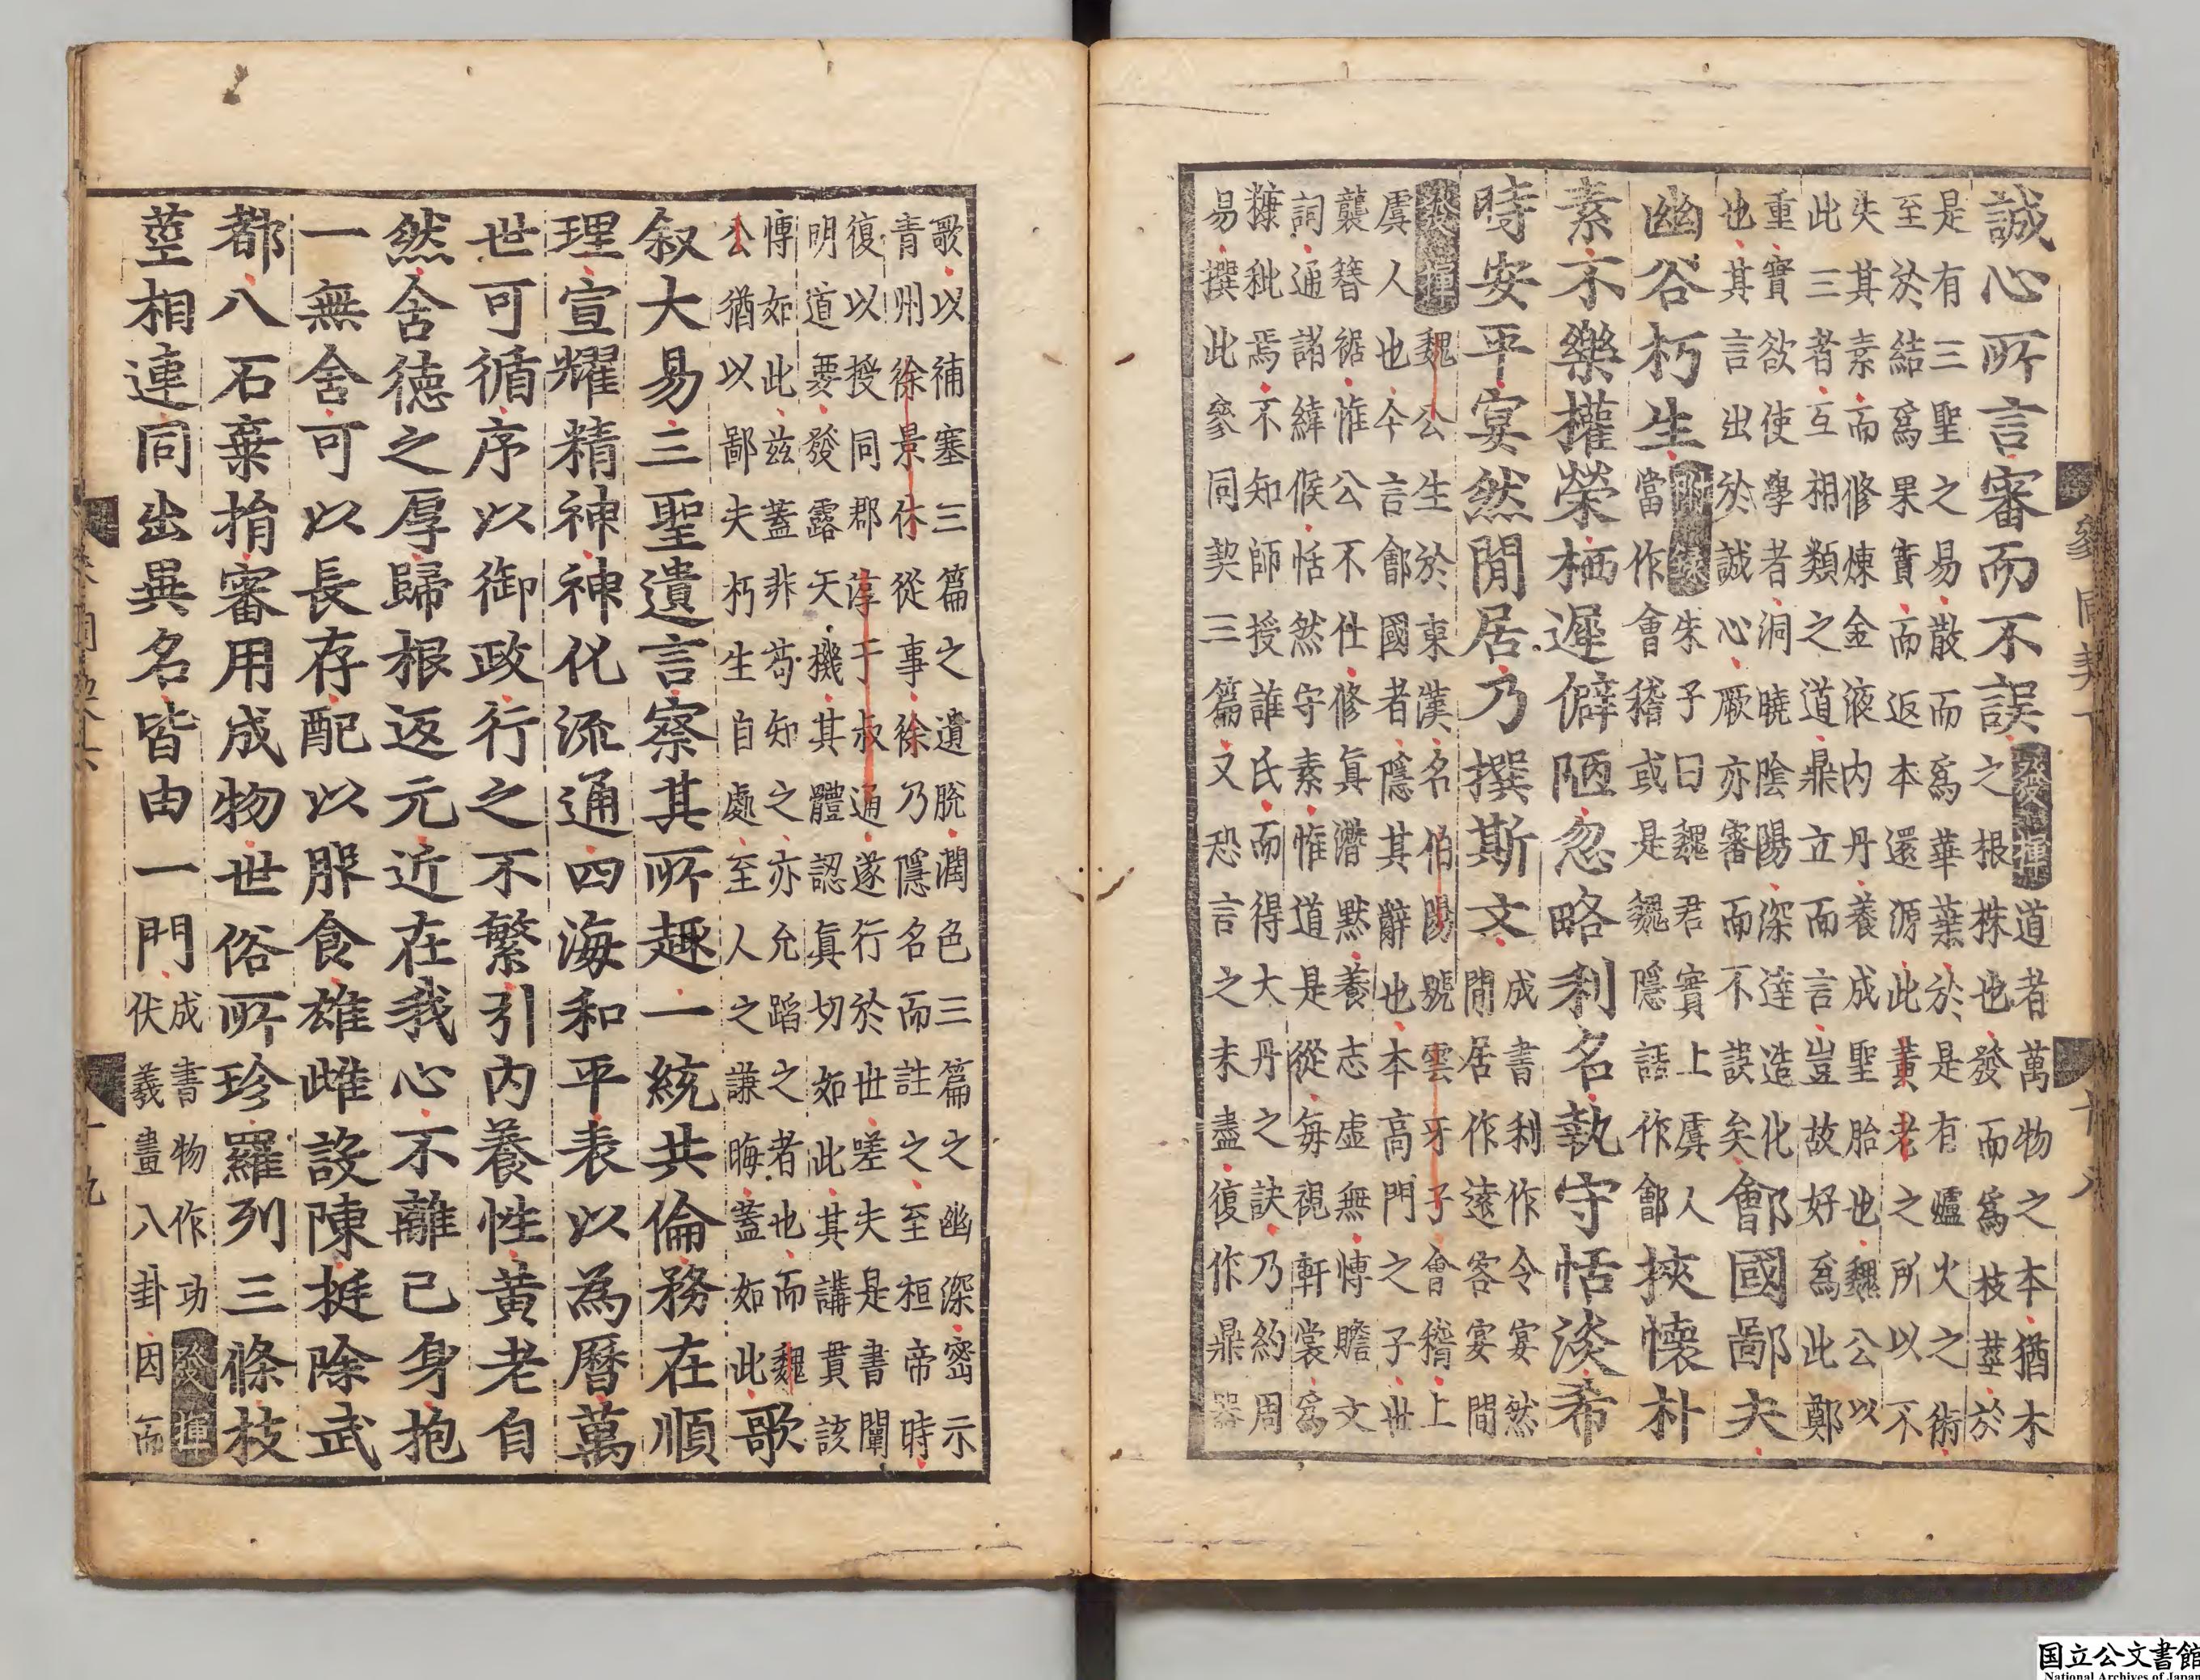 誠心所言審而不誤 發揮 道者萬物之本猶木
之根株也發而爲枝莖於
是有三聖之易散而爲華葉於是有爐火之術
至於結爲果實而返本還源此黄老之所以不
失其素而修煉金液内丹養成聖胎也魏公以
此三者互相類之道鼎立而言豈故好爲此鄭
重實欲使學者洞曉陰陽深達造化
也其言出於誠心厥亦審而不誤矣
鄶國鄙夫
幽谷朽生 附錄 朱子曰魏君實上虞人
當作會稽或是魏隱語作鄶
挾懷朴
素不樂權榮栖遲僻陋忽略利名執守恬淡希
時安平宴然閒居乃撰斯文 成書利作令宴然
閒居作遠客宴間
發揮 魏公生於東漢名伯陽號雲牙子會稽上
虞人也今言鄶國者隱其辭也本高門之子世
襲簪裾惟公不仕修眞潛默養志虛無博贍文
詞通諸緯候恬然守素惟道是從每視軒裳爲
糠秕焉不知師授誰氏而得大丹之訣乃約周
易撰此參同契三篇又恐言之未盡復作鼎器
參同契下 十八
歌以補塞三篇之遺脫潤色三篇之幽深密示
青州徐景休從事徐乃隱名而註之至桓帝時
復以授同郡淳于叔通遂行於世嗟夫是書闡
明道要發露天機其體認眞切如此其講貫該
博如此兹蓋非苟知之亦允蹈之者也而魏
公猶以鄙夫朽生自處至人之謙晦蓋如此
歌
叙大易三聖遺言察其所趣一統共倫務在順
理宣耀精神神化流通四海和平表以為曆萬
世可循序以御政行之不繁引内養性黄老自
然含德之厚歸根返元近在我心不離己身抱
一無舍可以長存配以服食雄雌設陳挺除武
都八石棄捐審用成物世俗所珍羅列三條枝
莖相連同出異名皆由一門 成書物作功 發揮
伏羲畫八卦因而
国立公文書館
National Archives of Japan